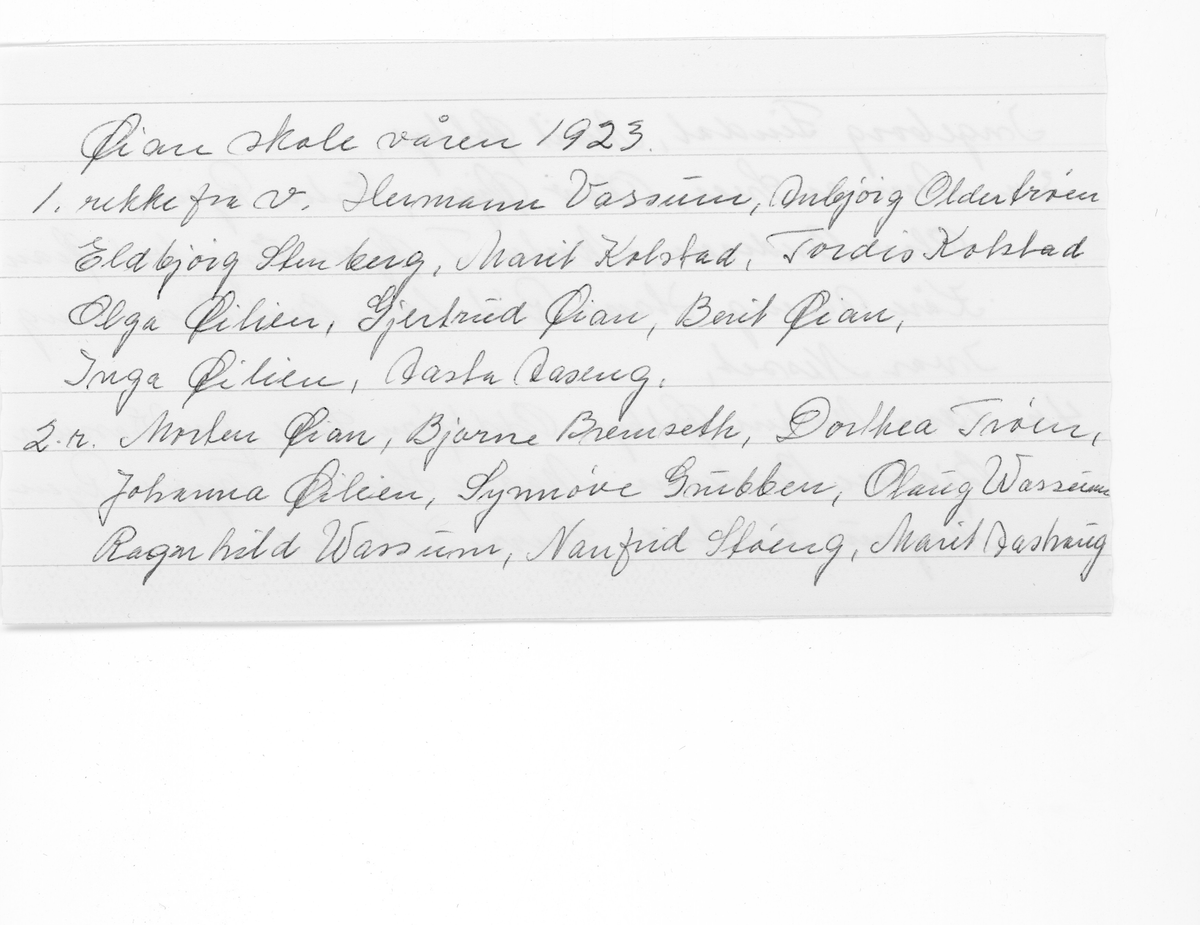 Øian skole våren 1923.
1. rekke fra v. Hermann Vassum, Anbjörg Oldertrøen
Eldbjörg Stenberg, Marit Kolstad, Tordis Kolstad
Olga Øilien, Gjertrud Øian, Berit Øian,
Inga Øilien, Aasta Aaseng.
2. r. Morten Øian, Bjarne Bremseth, Dorthea Trøen,
Johanna Øilien, Synnöve Grubben, Olaug Wassum
Ragnhild Wassum, Nanfrid Støeng, Marit Aashaug